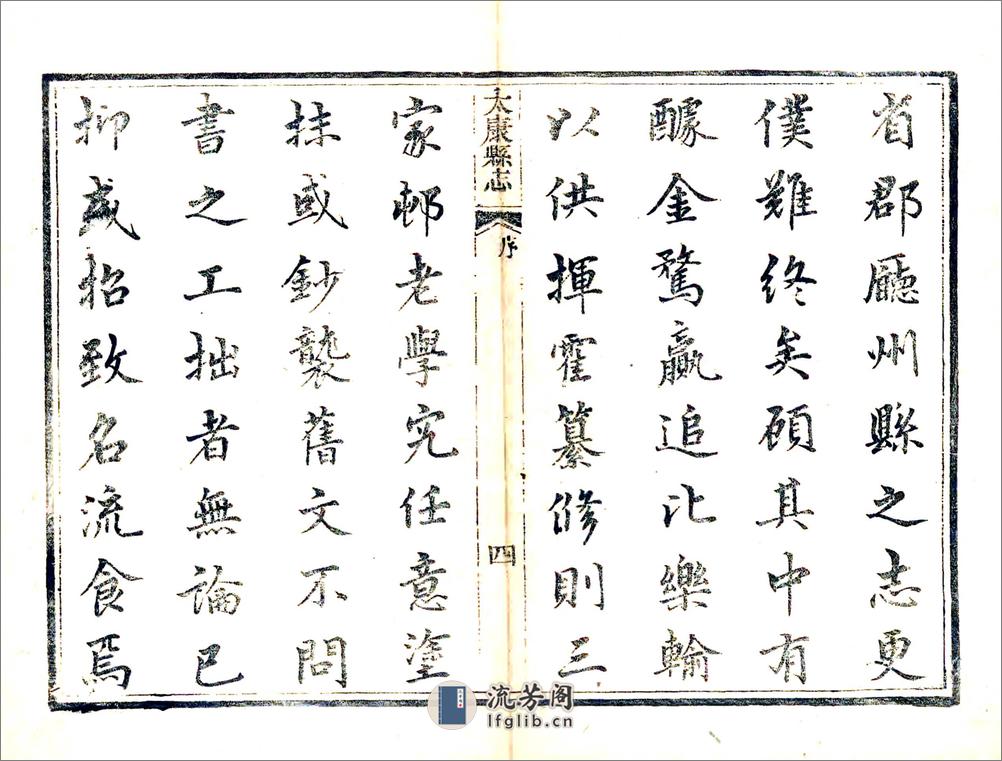 省郡廳州縣之志更
僕難終矣碩其中有
醵金驁贏追比樂輸
以供揮霍纂修則三
太康縣志 序 四
家邨老學究任意塗
抹或鈔襲舊文不問
書之工拙者無論已
抑或招致名流食焉
流芳阁
lfglib.cn